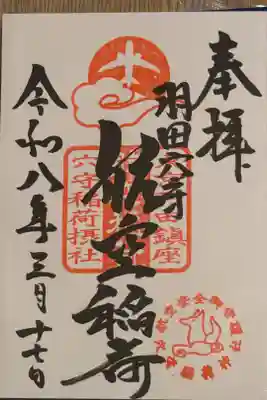 奉拝
羽田穴守
航空稲荷
令和八年三月十七日
田鎮座
穴守稲荷摂社